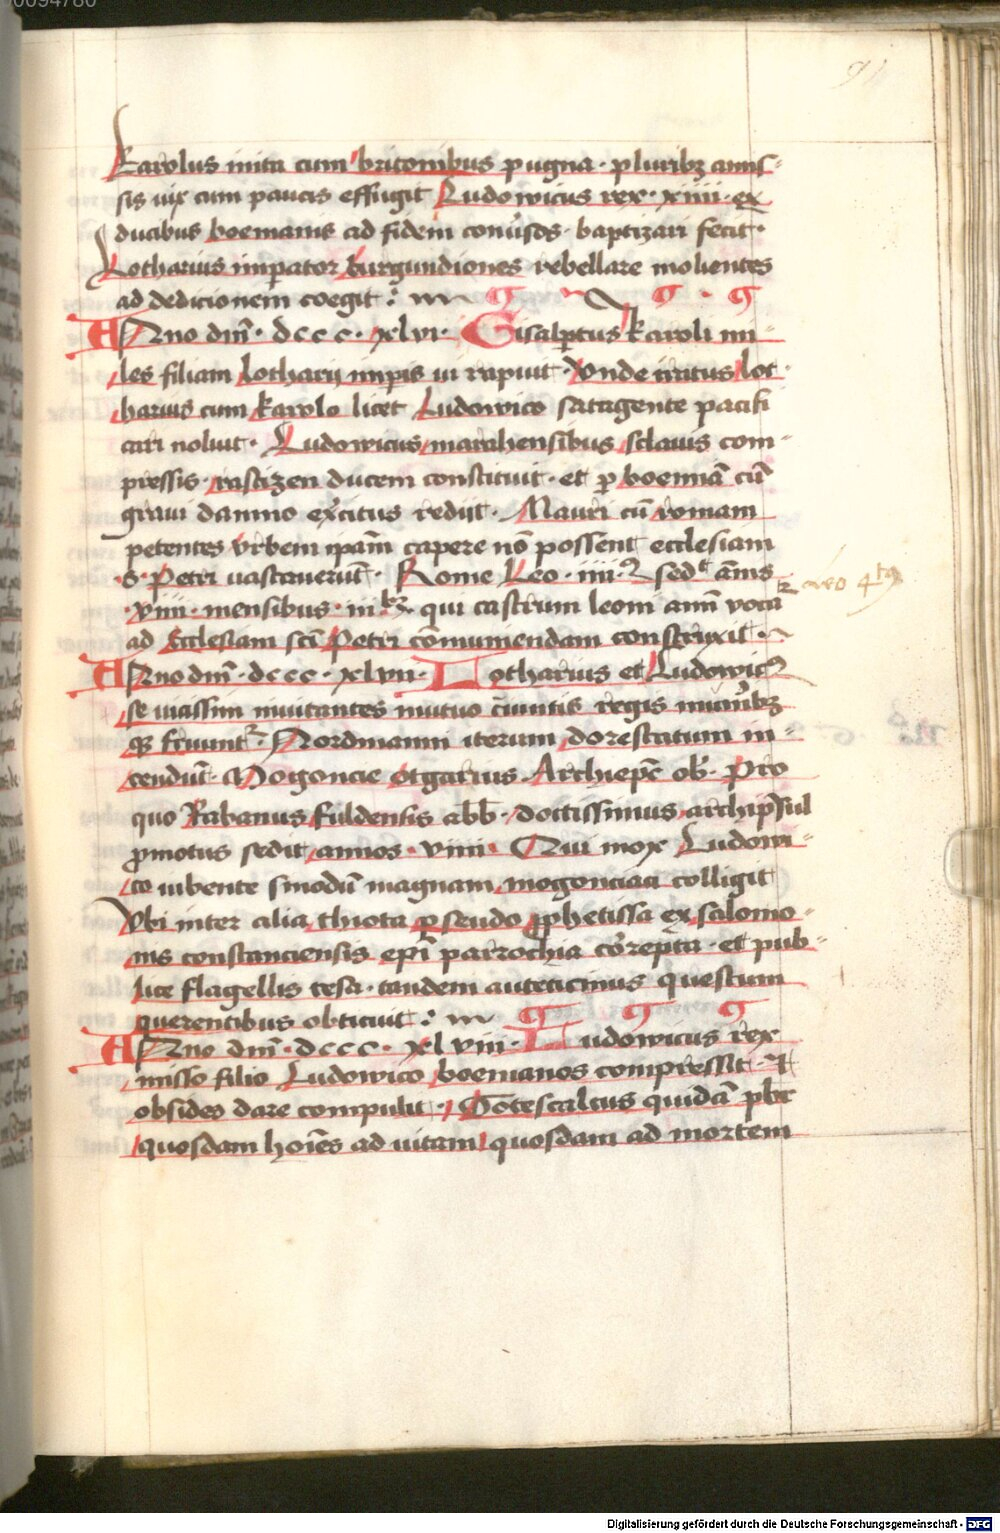 00094780
91
Karolus inita cum britonibus pugna · pluribꝫ amis-
sis uix cum paucis effugit Ludowicus rex · xiiii · ex
ducibus boemanis ad fidem conu̓sos · baptizari fecit ·
Lotharius imꝑator burgundiones rebellare molientes
ad dedicionem coegit :
Anno dn̄i · dccc · xlvi · Gisalbertus karoli mi-
les filiam Lotharij imperis ui rapuit · Vnde iratus Lot-
harius cum karolo licet Ludowico satagente pacifi
cari noluit · Ludowicus marahensibus sclauis com-
pressis · rastizen ducem constituit · et ꝑ boemiā cū
graui damno exercitus redijt · Mauri cū romam
petentes vrbem ipam̄ capere nō possent ecclesiam
· S · Petri uastauerūt · Rome Leo · iiii · sedᵗ annis
· viii · mensibus · iii qui castrum leonianū voca
ad Ecclesiam sci Petri com̄muniendam construxit ·
leo 4tꝰ
Anno dn̄i · dccc · xlvii · Lotharius et Ludowicꝰ
se uicissim inuitantes mutuo regis muneribꝫ
Nordmanni iterum dorestatum in-
cendūt · Mogoncie Otgarius · Archiepc̄ ob̄ · Pro
quo Rabanus fuldensis abb̄ · doctissimus archip̄sul
ꝓmotus sedit annos · viiii · Qui mox Ludowi-
co iubente sinodū magnam mogonciaci colligit
Vbi inter alia thiota pseudo ꝓphetissa ex salomo-
nis constanciensis ep̄i parrochia correpta · et pub-
lice flagellis cesa · tandem questum
querentibus obticuit :
Anno dn̄i · dccc · xlviii · Ludowicus rex
misso filio Ludowico boemanos compressit · Et
obsides dare compulit · Gotescalcus quidā pbr̄
quosdam hoīes ad uitam quosdam ad mortem
Digitalisierung gefördert durch die Deutsche Forschungsgemeinschaft - DFG